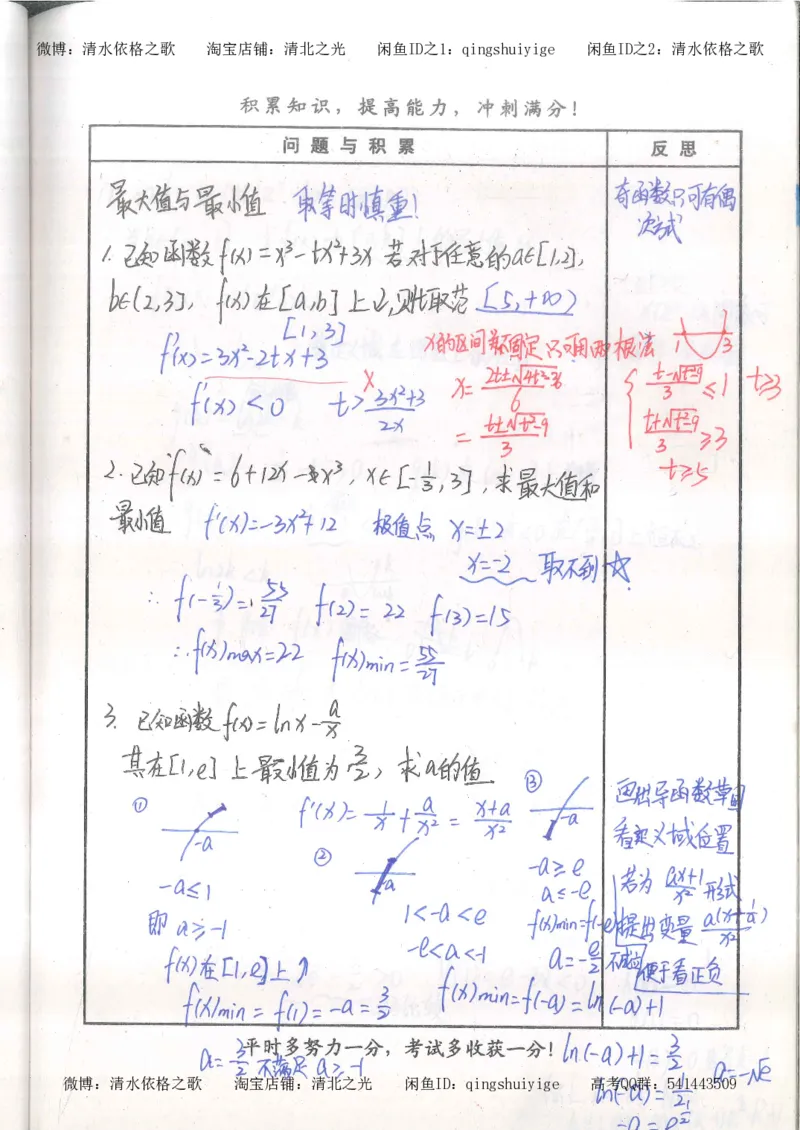 微博：清水依格之歌 淘宝店铺：清北之光 闲鱼ID之1：qingshuiyige 闲鱼ID之2：清水依格之歌
积累知识，提高能力，冲刺满分！
问题与积累
反思
最大值与最小值 取等时慎重！
奇函数只可有偶
次式
1. 已知函数f(x)=x³-tx²+3x 若对于任意的a∈[1,2],
b∈(2,3], f(x)在[a,b]上↘,则t取范 [5,+∞)
[1,3]
f'(x)=3x²-2tx+3
f'(x)<0 t>\frac{3x²+3}{2x} ×
x的区间都固定只可用两根法 1 3
x=\frac{2t±\sqrt{4t²-36}}{6}
=\frac{t±\sqrt{t²-9}}{3}
\frac{t-\sqrt{t²-9}}{3}≤1 t≥3
\frac{t+\sqrt{t²-9}}{3}≥3
t≥5
2. 已知f(x)=6+12x-x³, x∈[-\frac{1}{3},3], 求最大值和
最小值 f'(x)=-3x²+12 极值点 x=±2
x=-2 取不到☆
∴f(-\frac{1}{3})=\frac{55}{27} f(2)=22 f(3)=15
∴f(x)max=22 f(x)min=\frac{55}{27}
3. 已知函数f(x)=lnx-\frac{a}{x}
其在[1,e]上最小值为\frac{3}{2}, 求a的值
f'(x)=\frac{1}{x}+\frac{a}{x²}=\frac{x+a}{x²}
① -a
-a≤1
即 a≥-1
f(x)在[1,e]上↗
f(x)min=f(1)=-a=\frac{3}{2}
a=-\frac{3}{2}不满足 a≥-1
② -a
1<-a<e
-e<a<-1
f(x)min=f(-a)=ln(-a)+1
ln(-a)+1=\frac{3}{2}
ln(-a)=\frac{1}{2}
-a=e^{\frac{1}{2}}
a=-\sqrt{e}
③ -a
-a≥e
a≤-e
f(x)min=f(e)
a=-\frac{e}{2}不成立
画出导函数草图
看定义域位置
若为\frac{ax+1}{x²}形式
提出变量\frac{a(x+\frac{1}{a})}{x²}
便于看正负
平时多努力一分，考试多收获一分！
微博：清水依格之歌 淘宝店铺：清北之光 闲鱼ID：qingshuiyige 高考QQ群：541443509